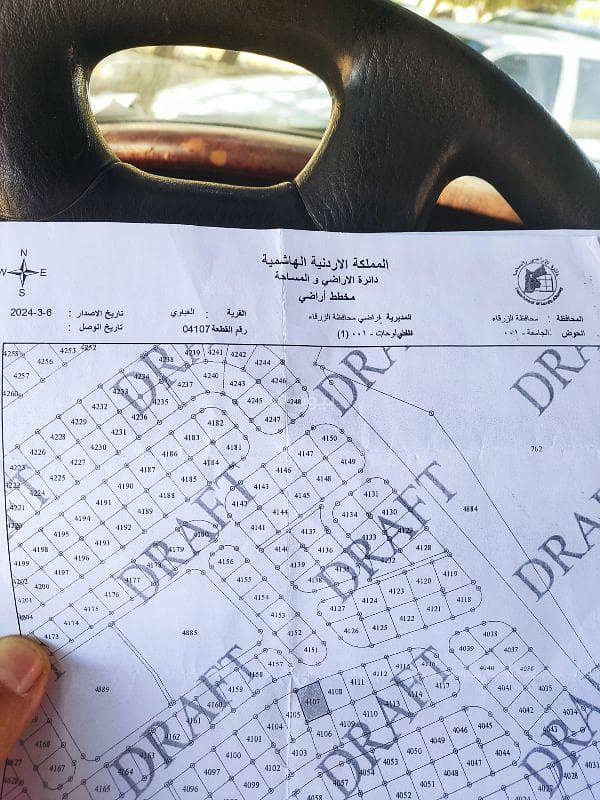 N
W E
S
المملكة الاردنية الهاشمية
دائرة الاراضي و المساحة
مخطط أراضي
المحافظة : محافظة الزرقاء المديرية : اراضي محافظة الزرقاء القرية : الغباوي تاريخ الاصدار : 2024-3-6
الحوض : الجامعة - ٠٠١ لوحات - ٠٠١ (1) رقم القطعة 04107 تاريخ الوصل :
4258 4256 4253 4252 4238 4239 4241 4242 4244
4257 4237 4240 4243 4246
4260 4232 4233 4235 4245 4248
4229 4236 4182 4247
4228 4231 4183 4181 4150
4226 4227 4230 4187 4186 4184 4147 4149
4223 4225 4190 4185 4143 4146 4148 762
4222 4224 4189 4142 4145 4131
4221 4195 4194 4188 4144 4134 4130 4884
4220 4193 4192 4141 4137 4133 4129
4198 4196 4180 4140 4136 4132 4128
4199 4197 4179 4156 4139 4135 4120 4119
4202 4200 4178 4155 4138 4124 4121 4118
4201 4177 4154 4127 4123 4122
4204 4176 4175 4153 4126 4125
4173 4174 4885 4152 4038
4151 4039 4037
4889 4158 4157 4111 4112 4116 4040 4036
4159 4107 4108 4113 4114 4117 4041 4035
4161 4105 4109 4110 4034
4168 4162 4100 4101 4104 4106 4046 4045 4042 4043
4167 4163 4103 4049 4044
4164 4097 4096 4099 4052 4054 4051 4050 4048 4047
4165 4058 4057 4028 4031
DRAFT
DRAFT
DRAFT
DRAFT
DRAFT
DRAFT
DRAFT
DRAFT
DRAFT